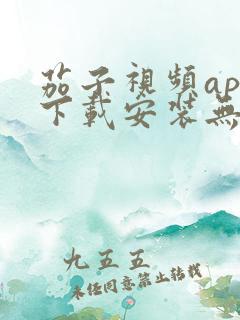 茄子視頻ap
下載安裝無
九五五
未经同意禁止转载